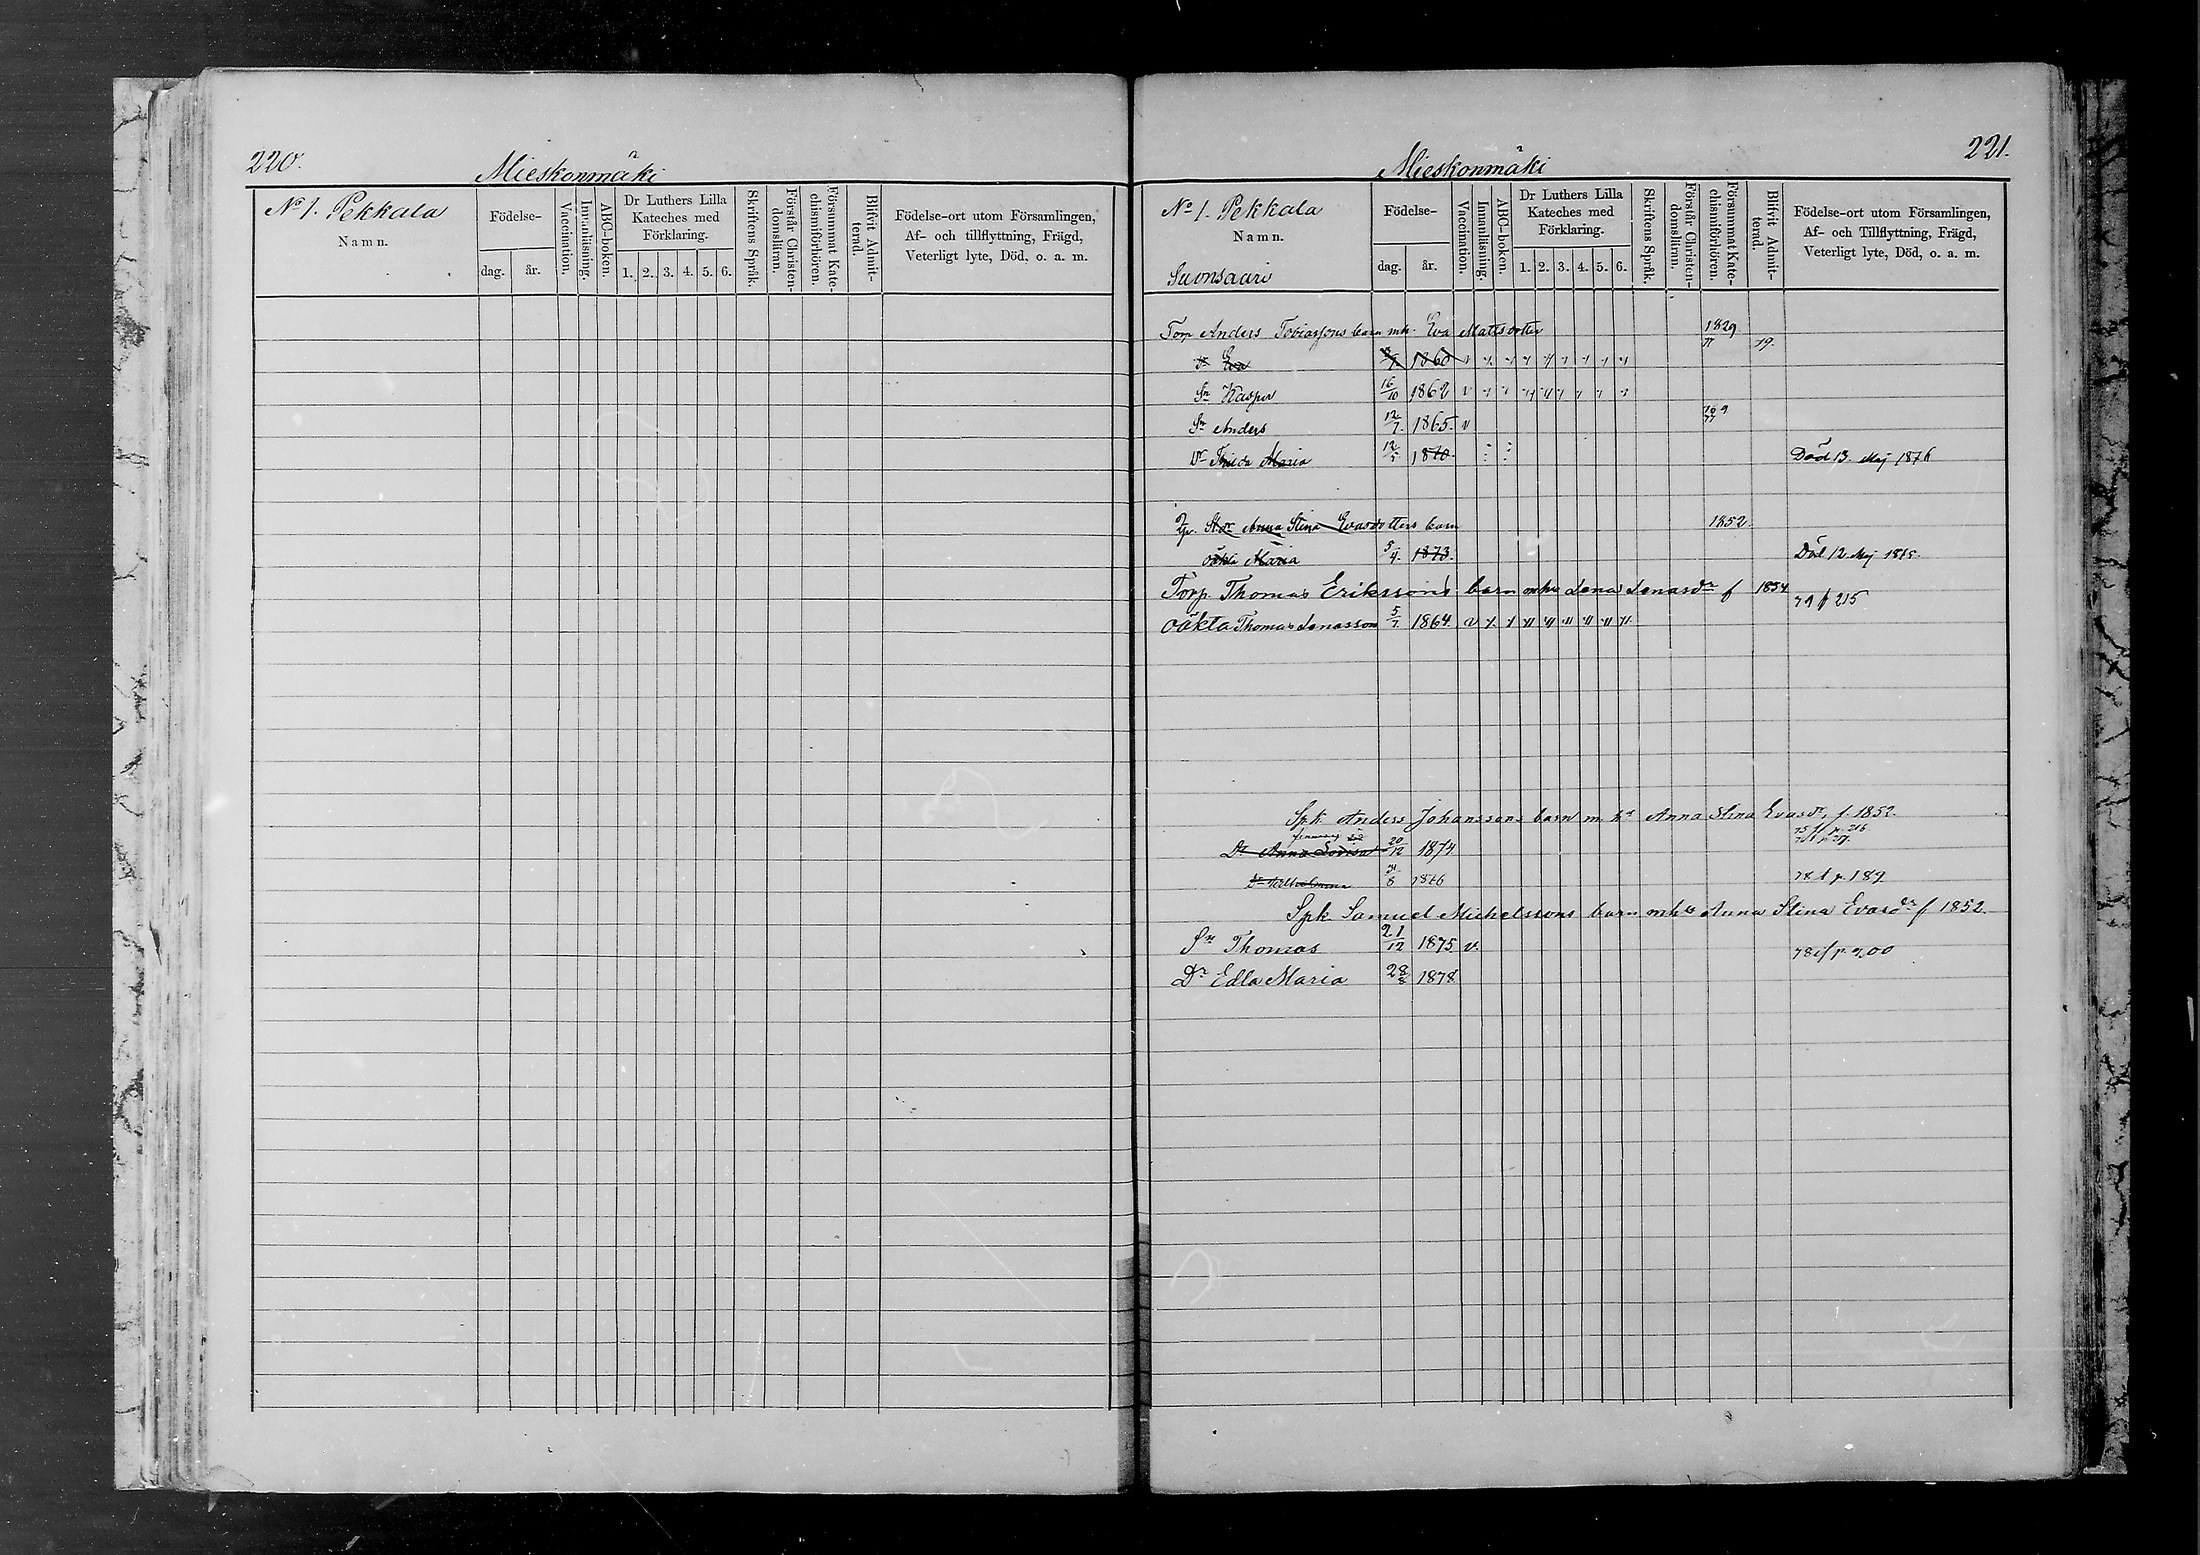 220.
Mieskonmäki
No 1. Pekkala
Namn.
Födelse-
dag.
år.
Vaccination.
Innanläsning.
ABC-boken.
Dr Luthers Lilla
Kateches med
Förklaring.
1. 2. 3. 4. 5. 6.
Skriftens Språk.
Förstår Christen-
domsläran.
Försummat Kate-
chismiförhören.
Blifvit Admit-
terad.
Födelse-ort utom Församlingen,
Af- och tillflyttning, Frägd,
Veterligt lyte, Död, o. a. m.
221.
Mieskonmäki
No 1. Pekkala
Namn.
Suonsaari
Födelse-
dag.
år.
Vaccination.
Innanläsning.
ABC-boken.
Dr Luthers Lilla
Kateches med
Förklaring.
1. 2. 3. 4. 5. 6.
Skriftens Språk.
Förstår Christen-
domsläran.
Försummat Kate-
chismiförhören.
Blifvit Admit-
terad.
Födelse-ort utom Församlingen,
Af- och Tillflyttning, Frägd,
Veterligt lyte, Död, o. a. m.
Torp Anders Tobiassons barn mh. Eva Mattsdotter 1829
Dr Eva 1860 v 79.
Sn Kasper 16/10 1862 v
Sn Anders 12/7. 1865. v
Dr Maria 12/5 1870. Död 13. Maj 1876
Anna Stina Evasdotters barn 1852
oäkta Maria 5/4. 1873. Död 12 Maj 1875.
Torp. Thomas Erikssons barn mhu Lena Lenasdr f 1834
79 f 215
oäkta Thomas Lenasson 5/7. 1864. v
Spk Anders Johanssons barn m. hu Anna Stina Evasdr, f. 1852.
75 f p. 216
Dr Anna Lovisa 20/12 1874
Dr Wilhelmina 1876 78 f p. 189
Spk. Samuel Michelssons barn mhu Anna Stina Evasdr f 1852.
Sn Thomas 21/12 1875 v. 78 if p. 200
Dr Edla Maria 28/8 1878